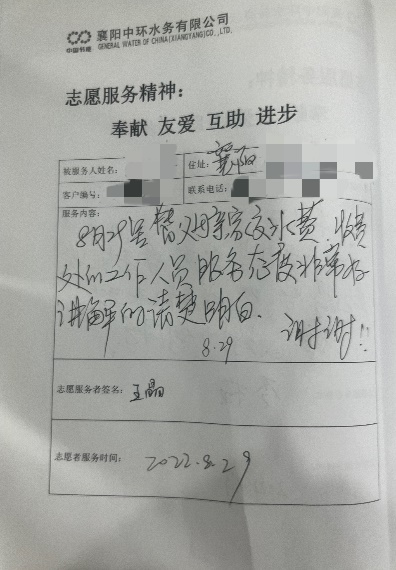 中国节能
襄阳中环水务有限公司
GENERAL WATER OF CHINA(XIANGYANG)CO.,LTD.
志愿服务精神：
奉献 友爱 互助 进步
被服务人姓名：
住址：襄阳
客户编号：
联系电话：
服务内容：
8月29号替父母亲交水费 收费
处的工作人员服务态度非常好
讲解的清楚明白.
谢谢!!
8.29
志愿服务者签名：王晶
志愿者服务时间：2022.8.29